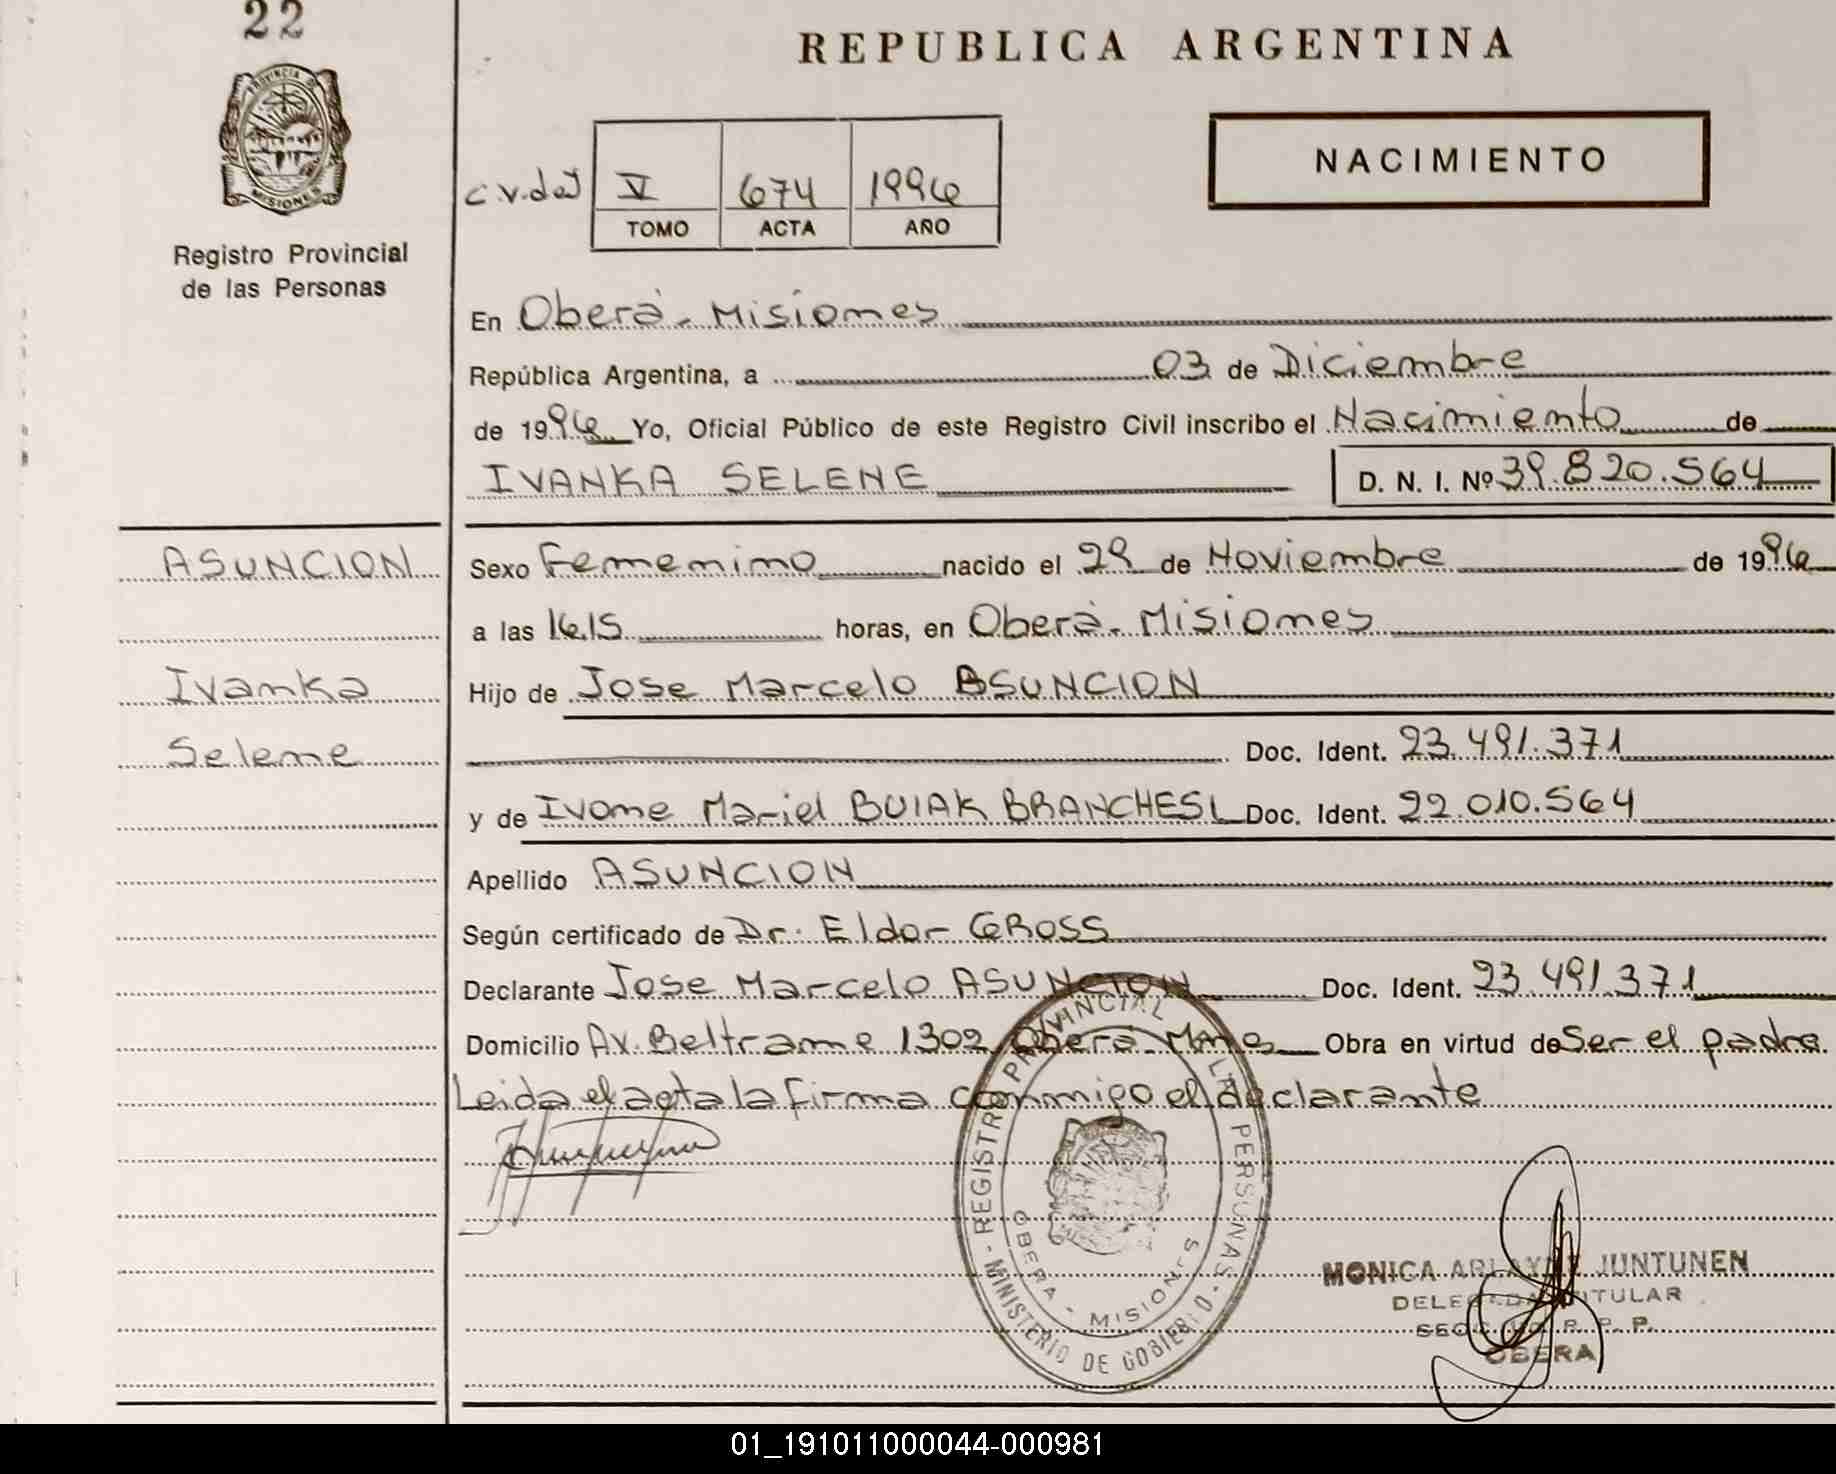 22
REPUBLICA ARGENTINA
PROVINCIA DE
MISIONES
Registro Provincial
de las Personas
NACIMIENTO
c.v.def V 674 1996
TOMO ACTA AÑO
En Oberá - Misiones
República Argentina, a 03 de Diciembre
de 1996 Yo, Oficial Público de este Registro Civil inscribo el Nacimiento de
IVANKA SELENE D. N. I. Nº 39.820.564
ASUNCION
Ivanka
Selene
Sexo Femenino nacido el 29 de Noviembre de 1996
a las 16.15 horas, en Oberá - Misiones
Hijo de Jose Marcelo ASUNCION
Doc. Ident. 23.491.371
y de Ivone Mariel BUIAK BRANCHESI Doc. Ident. 22.010.564
Apellido ASUNCION
Según certificado de Dr. Eldor GROSS
Declarante Jose Marcelo ASUNCION Doc. Ident. 23.491.371
Domicilio Av. Beltrame 1302 Oberá - Mnes Obra en virtud de Ser el padre
Leida el acta la firma conmigo el declarante
REGISTRO PROVINCIAL LAS PERSONAS - MINISTERIO DE GOBIERNO -
OBERA - MISIONES
MONICA ARLAYNE JUNTUNEN
DELEGADA TITULAR
SECC. R. P. P.
OBERA
01_191011000044-000981